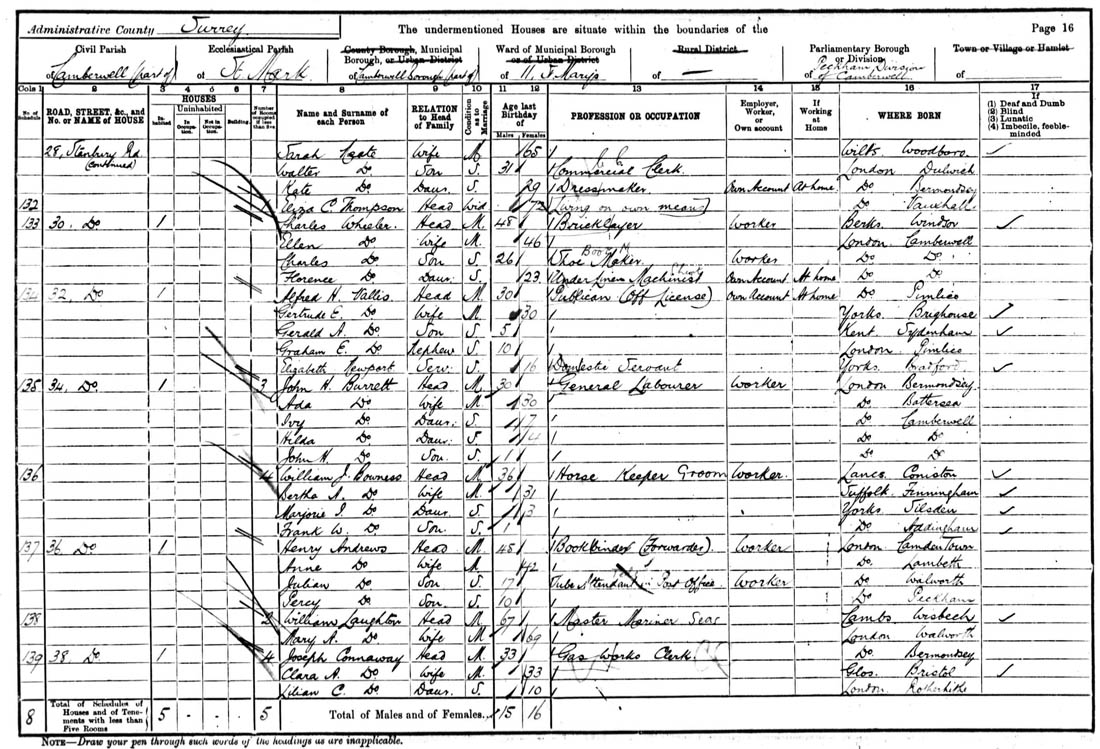 Administrative County Surrey The undermentioned Houses are situate within the boundaries of the Page 16
Civil Parish Ecclesiastical Parish County Borough, Municipal Borough, or Urban District Ward of Municipal Borough or of Urban District Rural District Parliamentary Borough or Division Town or Village or Hamlet
of Camberwell (part of) of St Mark of Camberwell borough (part of) of 11. St Marys of — of Peckham Division of Camberwell
Cols 1 2 3 4 5 6 7 8 9 10 11 12 13 14 15 16 17
No. of Schedule ROAD, STREET, &c., and No. or NAME of HOUSE HOUSES Inhabited Uninhabited In Occupation Not in Occupation Building Number of Rooms occupied if less than five Name and Surname of each Person RELATION to Head of Family Condition as to Marriage Age last Birthday of Males Females PROFESSION OR OCCUPATION Employer, Worker, or Own account If Working at Home WHERE BORN If (1) Deaf and Dumb (2) Blind (3) Lunatic (4) Imbecile, feeble-minded
28, Stanbury Rd (continued) Sarah Wife M. 65 Wilts Woodboro.
Walter Do Son S. 31 Commercial Clerk. London Dulwich
Kate Do Daur. S. 29 Dressmaker Own Account At home Do Bermondsey
132 Eliza C. Thompson Head Wid 72 Living on own means Do Vauxhall
133 30. Do 1 Charles Wheeler Head M. 48 Bricklayer Worker Berks. Windsor
Ellen Do Wife M. 46 London Camberwell
Charles Do Son S. 26 Shoe Maker Boot M Worker Do Do
Florence Do Daur. S. 23 Under Linen Machinist Own Account At home Do Do
134 32. Do 1 Alfred H. Vallis Head M. 30 Publican (Off License) Own Account At home Do Pimlico
Gertrude E. Do Wife M. 30 Yorks. Brighouse
Gerald A. Do Son S. 5 Kent. Sydenham
Graham E. Do Nephew S. 10 London Pimlico
Elizabeth Newport Serv. S. 16 Domestic Servant Yorks. Bradford
135 34. Do 1 3 John H. Burrett Head M. 30 General Labourer Worker London Bermondsey
Ada Do Wife M. 30 Do Battersea
Ivy Do Daur. S. 7 Do Camberwell
Hilda Do Daur. S. 4 Do Do
John H. Do Son S. 1 Do Do
136 4 William J. Bowness Head M. 36 Horse Keeper Groom Worker. Lancs. Coniston
Bertha A. Do Wife M. 31 Suffolk. Finningham
Marjorie I. Do Daur. S. 3 Yorks Silsden
Frank W. Do Son. S. 1 Do Addingham
137 36 Do 1 Henry Andrews Head M. 45 Bookbinder (Forwarder). Worker London Camden Town
Anne Do Wife M 42 Do. Lambeth
Julian Do Son S. 17 Tube Attendant in Post Office Worker Do Walworth
Percy Do Son. S. 10 Do Peckham
138 2 William Laughton Head M. 67 Master Mariner Seas Cambs Wisbech
Mary A. Do Wife M. 69 London Walworth
139 38. Do 1 4 Joseph Connaway Head M. 33 Gas Works Clerk Do. Bermondsey
Clara A. Do Wife M. 33 Glos. Bristol
Lilian C. Do Daur. S. 10 London Rotherhithe
8 Total of Schedules of Houses and of Tenements with less than Five Rooms 5 - - - 5 Total of Males and of Females... 15 16
NOTE—Draw your pen through such words of the headings as are inapplicable.